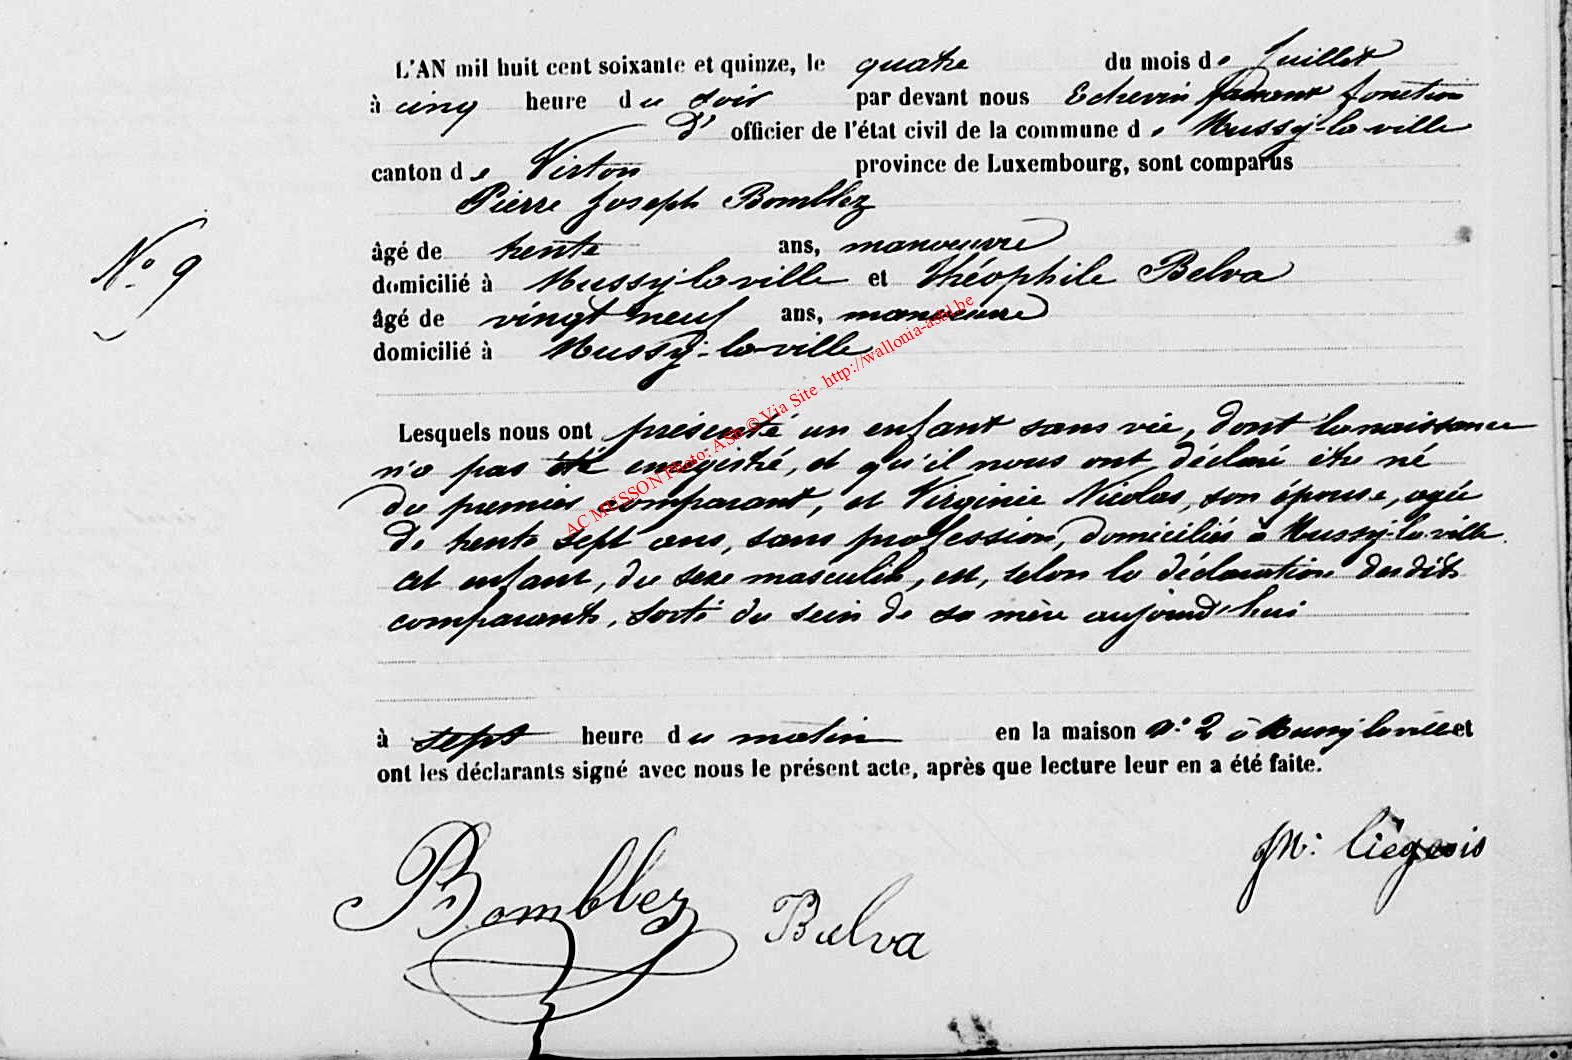 L'AN mil huit cent soixante et quinze, le quatre du mois de Juillet
à cinq heure du soir par devant nous Echevin faisant fonction
d' officier de l'état civil de la commune de Mussy-la-ville
canton de Virton province de Luxembourg, sont comparus
Pierre Joseph Bomblez
N° 9
âgé de trente ans, manoeuvre
domicilié à Mussy-la-ville et Théophile Belva
âgé de vingt neuf ans, manoeuvre
domicilié à Mussy-la-ville
AC MUSSON Photo: ASBL © Via Site http://wallonia-asbl.be
Lesquels nous ont présenté un enfant sans vie, dont la naissance
n'a pas été enregistré, et qu'il nous ont déclaré être né
du premier comparant, et Virginie Nicolas, son épouse, agée
de trente sept ans, sans profession, domiciliés à Mussy-la-ville.
cet enfant, du sexe masculin, est, selon la déclaration desdits
comparants, sorti du sein de sa mère aujourd'hui
à sept heure du matin en la maison n° 2 à Mussy la ville et
ont les déclarants signé avec nous le présent acte, après que lecture leur en a été faite.
JN: Liégeois
Bomblez Belva